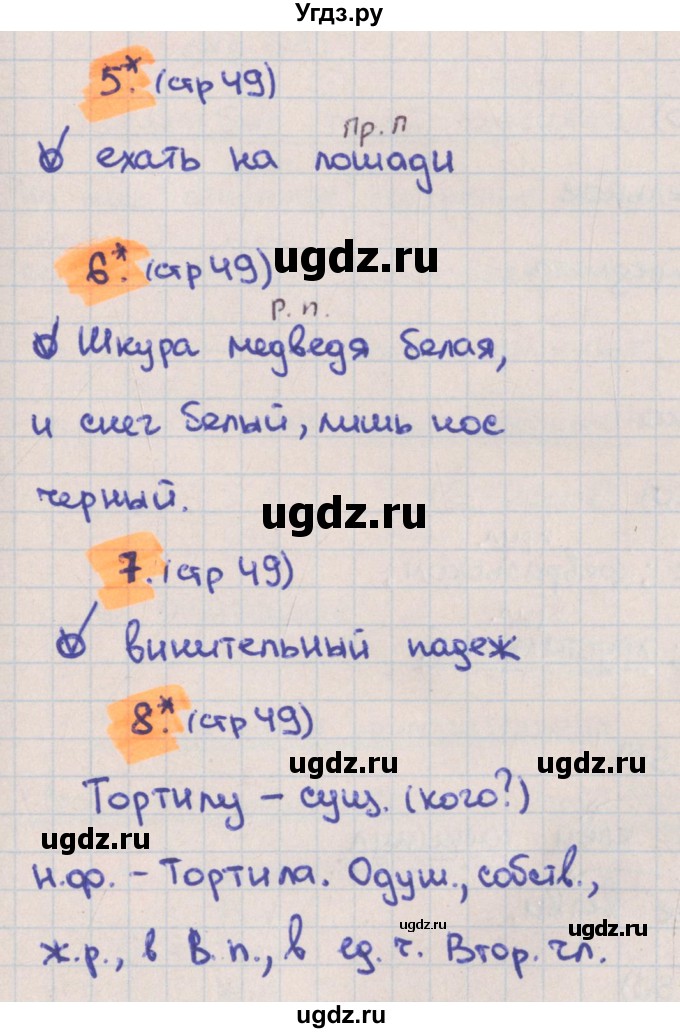 Угдз.ру
5.* (стр 49)
Пр. п
ехать на лошади
6.* (стр 49)
ugdz.ru
Р. п.
Шкура медведя белая,
и снег белый, лишь нос
черный.
ugdz.ru
7. (стр 49)
винительный падеж
8.* (стр 49)
ugdz.ru
Тортилу – сущ. (кого?)
ugdz.ru
н.ф. – Тортила. Одуш., собств.,
ugdz.ru
ж.р., в В.п., в ед.ч. Втор. чл.
ugdz.ru